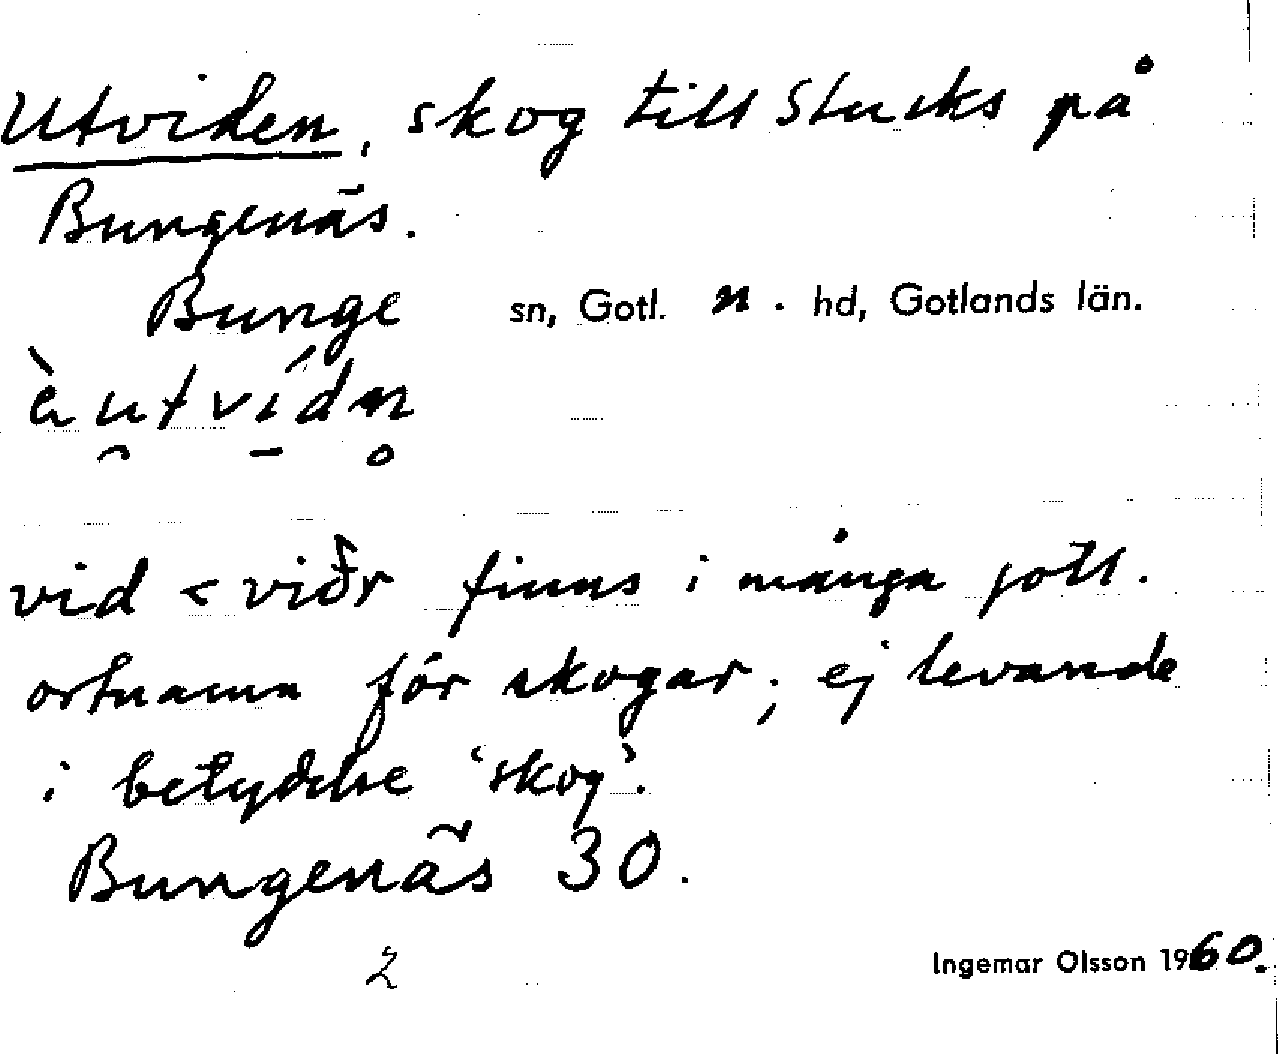 Utviden, skog till Stucks på
Bungenäs.
Bunge sn, Gotl. n. hd, Gotlands län.
vid < viðr finns i många gotl.
ortnamn för skogar; ej levande
i betydelse ‘skog’.
Bungenäs 30.
2
Ingemar Olsson 1960.